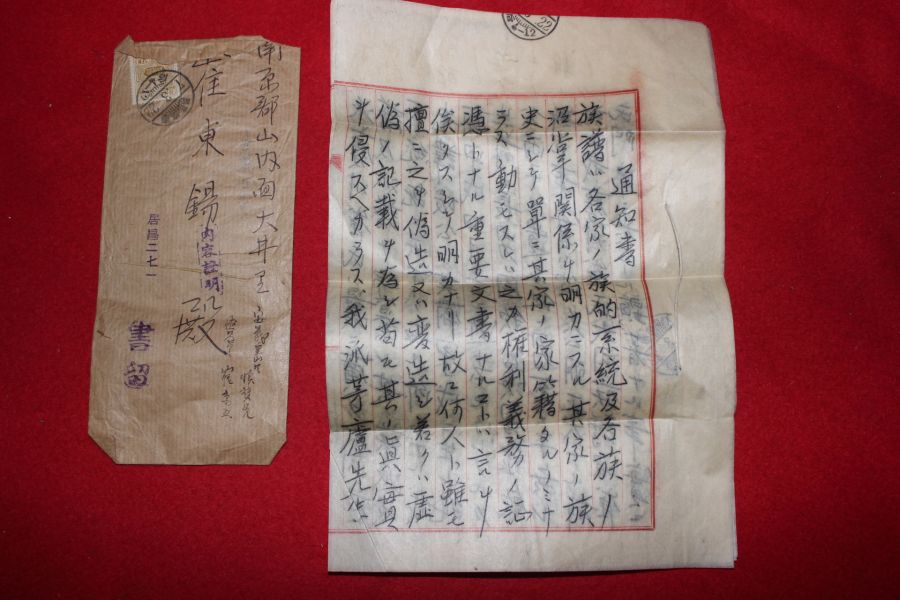 南原郡山内面大井里
崔東錫殿
内容証明
居昌二七一
書留
通知書
族譜ハ各家ノ族的系統及各族ノ
沿 関係ヲ明カニスル其家ノ族
史ニシテ單ニ其家ノ家籍タルノミナ
ラス動モスレハ之カ権利義務ノ証
憑トナル重要文書ナルコトハ言ヲ
俟タスシテ明カナリ故ニ何人ト雖モ
擅ニ之ヲ偽造又ハ変造シ若クハ虚
偽ノ記載ヲ為シ苟モ其ノ眞實
ヲ侵スヘカラス我派等廬先